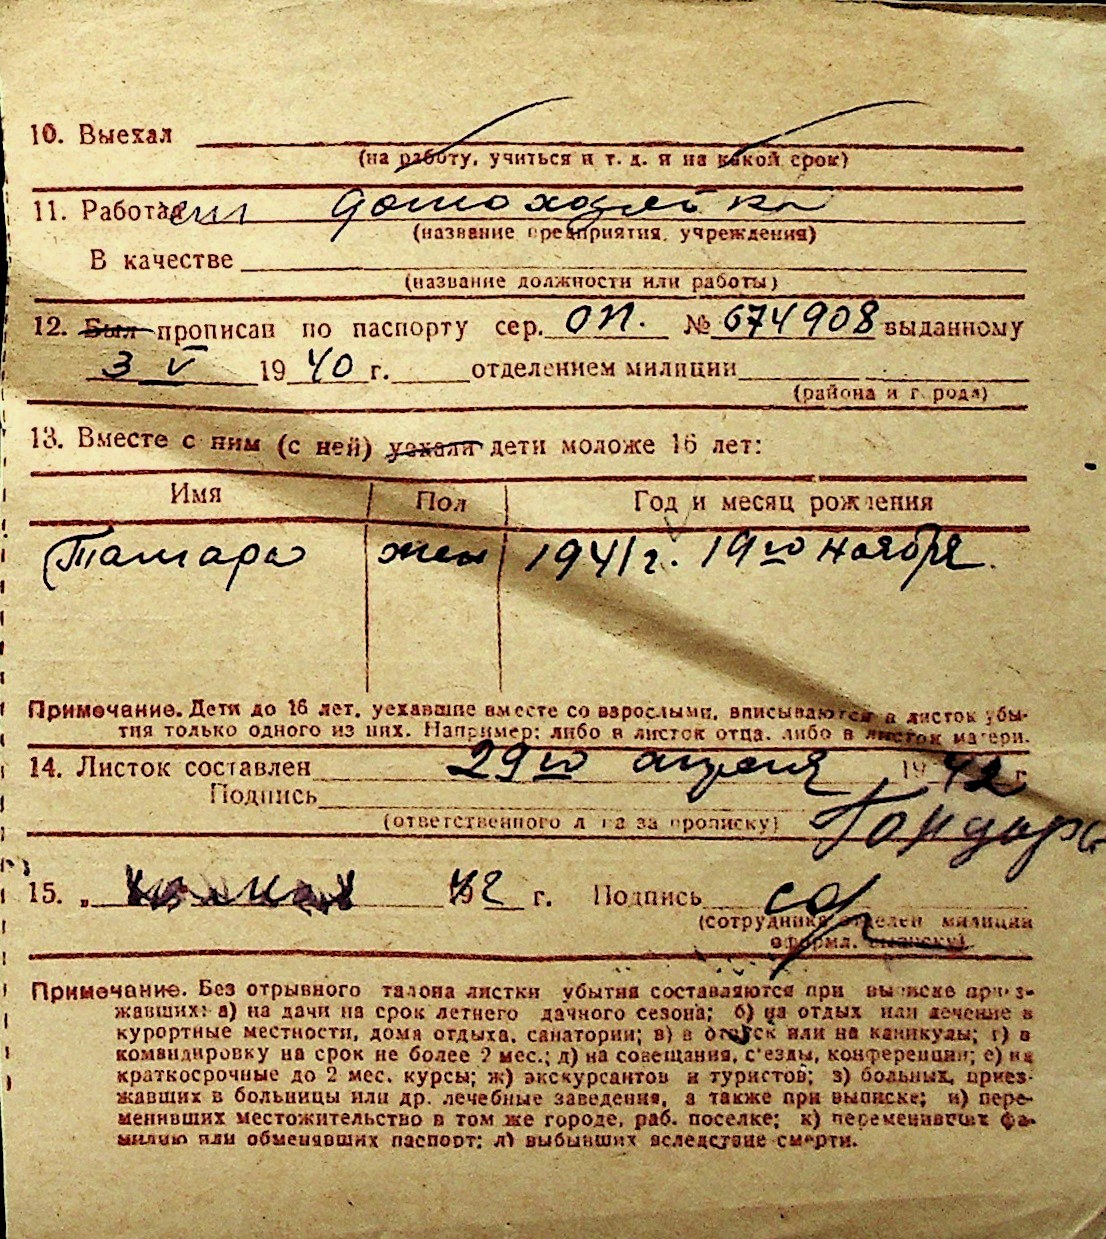 10. Выехал
(на работу, учиться и т. д. и на какой срок)
11. Работа домохозяйка
(название предприятия, учреждения)
В качестве
(название должности или работы)
12. Был прописан по паспорту сер. ОП. № 674908 выданному
3 V 1940 г. отделением милиции
(района и города)
13. Вместе с ним (с ней) уехали дети моложе 16 лет:
Имя Пол Год и месяц рождения
Тамара жен 1941 г. 19го ноября.
Примечание. Дети до 16 лет, уехавшие вместе со взрослыми, вписываются в листок убы-
тия только одного из них. Например: либо в листок отца, либо в листок матери.
14. Листок составлен 29го апреля 1942 г
Подпись
(ответственного лица за прописку)
15. „ 42 г. Подпись
(сотрудника отделен милиции
оформл. выписку)
Примечание. Без отрывного талона листки убытия составляются при выписке приез-
жавших: а) на дачи на срок летнего дачного сезона; б) на отдых или лечение в
курортные местности, дома отдыха, санатории; в) в отпуск или на каникулы; г) в
командировку на срок не более 2 мес.; д) на совещания, с'езды, конференции; е) на
краткосрочные до 2 мес. курсы; ж) экскурсантов и туристов; з) больных, приез-
жавших в больницы или др. лечебные заведения, а также при выписке; и) пере-
менивших местожительство в том же городе, раб. поселке; к) переменивших фа-
милию или обменявших паспорт; л) выбывших вследствие смерти.